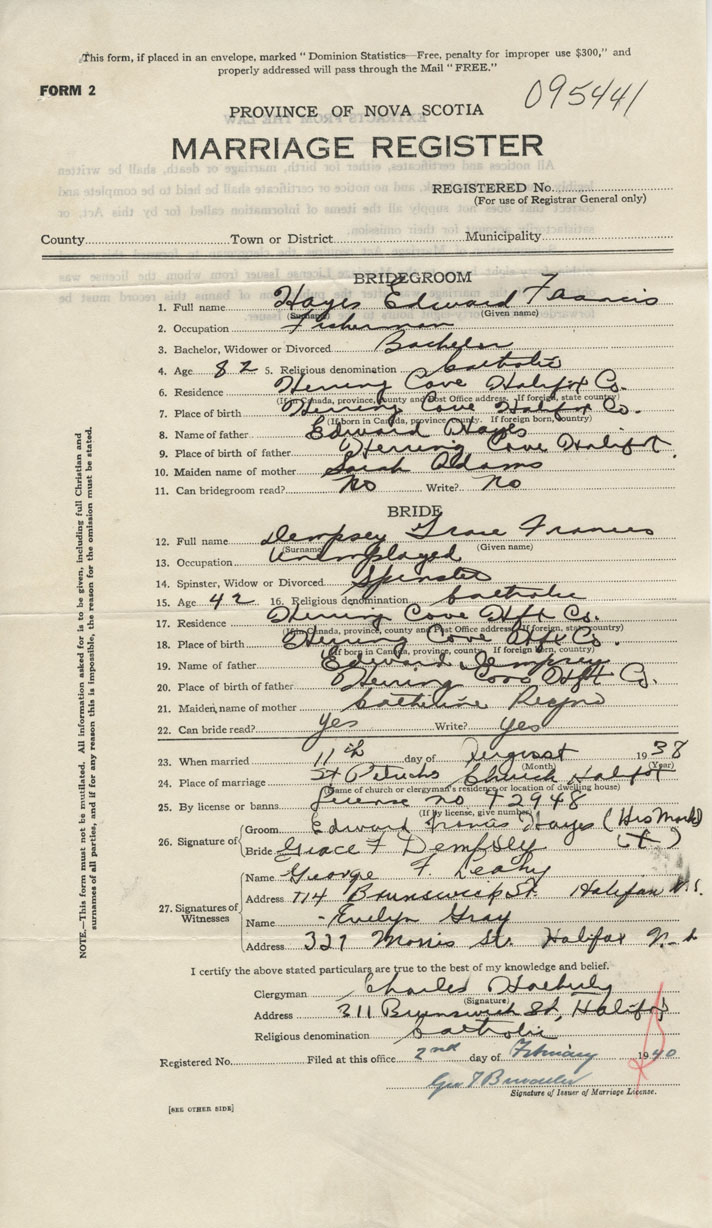 This form, if placed in an envelope, marked "Dominion Statistics—Free, penalty for improper use $300," and
properly addressed will pass through the Mail "FREE."
FORM 2
095441
PROVINCE OF NOVA SCOTIA
MARRIAGE REGISTER
REGISTERED No.
(For use of Registrar General only)
County Town or District Municipality
BRIDEGROOM
1. Full name Hayes Edward Francis
(Surname) (Given name)
2. Occupation Fisherman
3. Bachelor, Widower or Divorced Bachelor
4. Age 82 5. Religious denomination Catholic
6. Residence Herring Cove Halifax Co.
(If in Canada, province, county and Post Office address. If foreign, state country)
7. Place of birth Herring Cove Halifax Co.
(If born in Canada, province, county. If foreign born, country)
8. Name of father Edward Hayes
9. Place of birth of father Herring Cove Halifax.
10. Maiden name of mother Sarah Adams
11. Can bridegroom read? No Write? No
BRIDE
12. Full name Dempsey Grace Frances
(Surname) (Given name)
13. Occupation Unemployed
14. Spinster, Widow or Divorced Spinster
15. Age 42 16. Religious denomination Catholic
17. Residence Herring Cove Hfx Co.
(If in Canada, province, county and Post Office address. If foreign, state country)
18. Place of birth Herring Cove Hfx Co.
(If born in Canada, province, county. If foreign born, country)
19. Name of father Edward Dempsey
20. Place of birth of father Herring Cove Hfx Co.
21. Maiden name of mother Catherine
22. Can bride read? Yes Write? Yes
23. When married 11th day of August 1938
(Month) (Year)
24. Place of marriage St Patricks Church Halifax
(Name of church or clergyman's residence or location of dwelling house)
25. By license or banns License no 2948
(If by license, give number)
26. Signature of Groom Edward Francis Hayes (His Mark)
Bride Grace F Dempsey
27. Signatures of Witnesses
Name George F. Leahy
Address 714 Brunswick St. Halifax N.S.
Name Evelyn Gray
Address 327 Morris St. Halifax N.S.
I certify the above stated particulars are true to the best of my knowledge and belief.
Clergyman Charles
(Signature)
Address 311 Brunswick St, Halifax
Religious denomination Catholic
Registered No. Filed at this office 2nd day of February 1940
Geo T
Signature of Issuer of Marriage License.
[SEE OTHER SIDE]
NOTE.—This form must not be mutilated. All information asked for is to be given, including full Christian and
surnames of all parties, and if for any reason this is impossible, the reason for the omission must be stated.